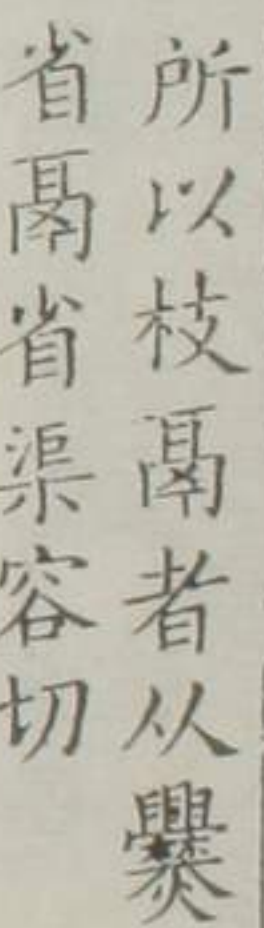 所以枝鬲者从爨
省鬲省渠容切